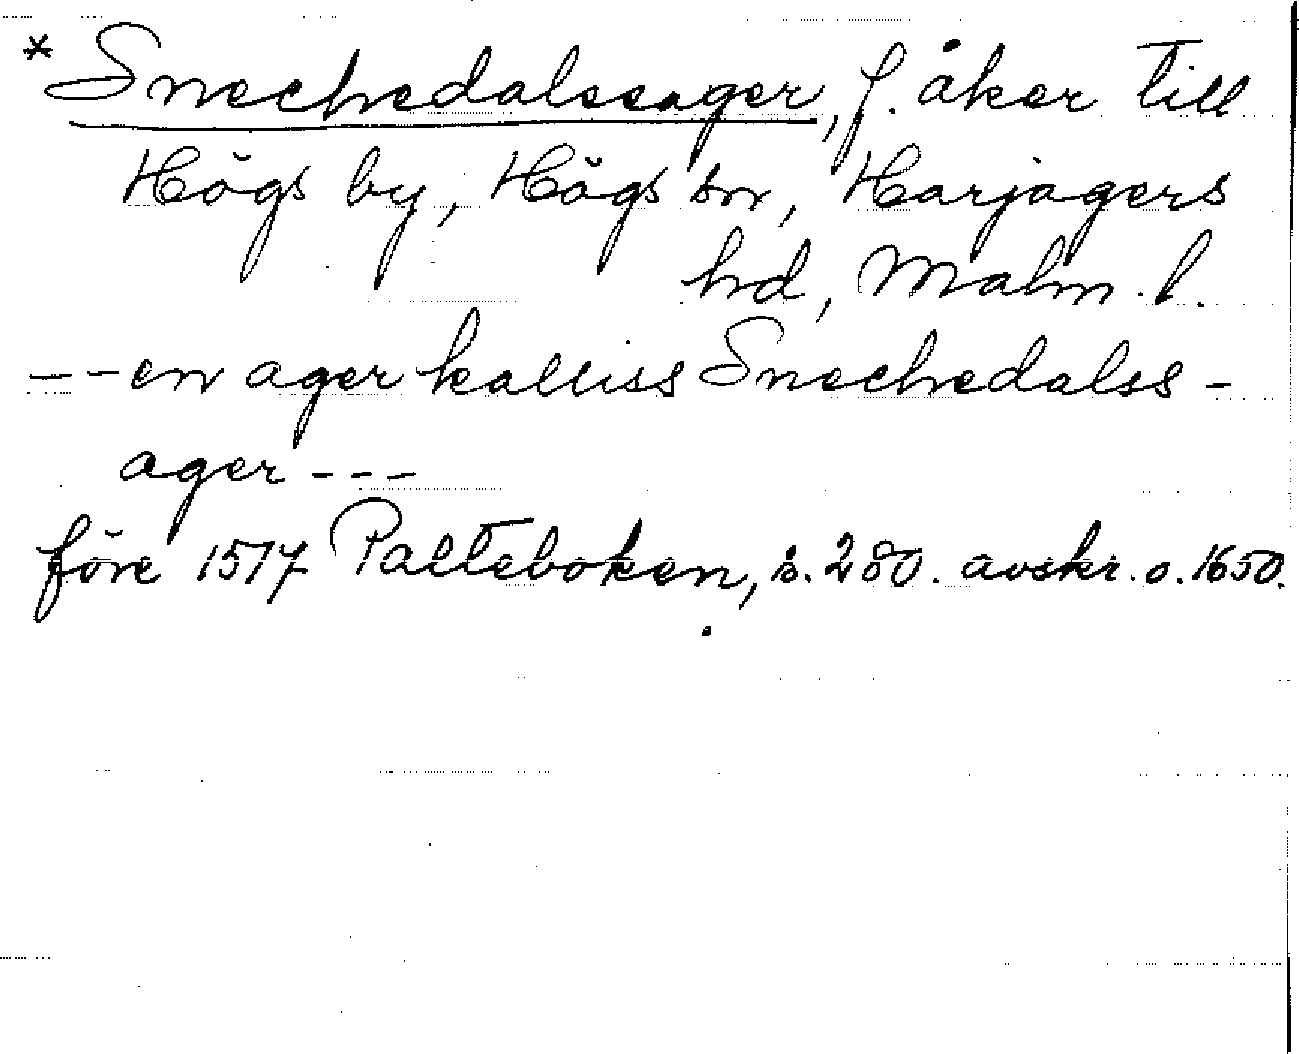 * Snechedalssager, f. åker till
Högs by, Högs sn, Harjagers
hd, Malm. l.
--en ager kalliss Snechedalss-
ager---
före 1517 Palteboken, s. 280. avskr. o. 1650.